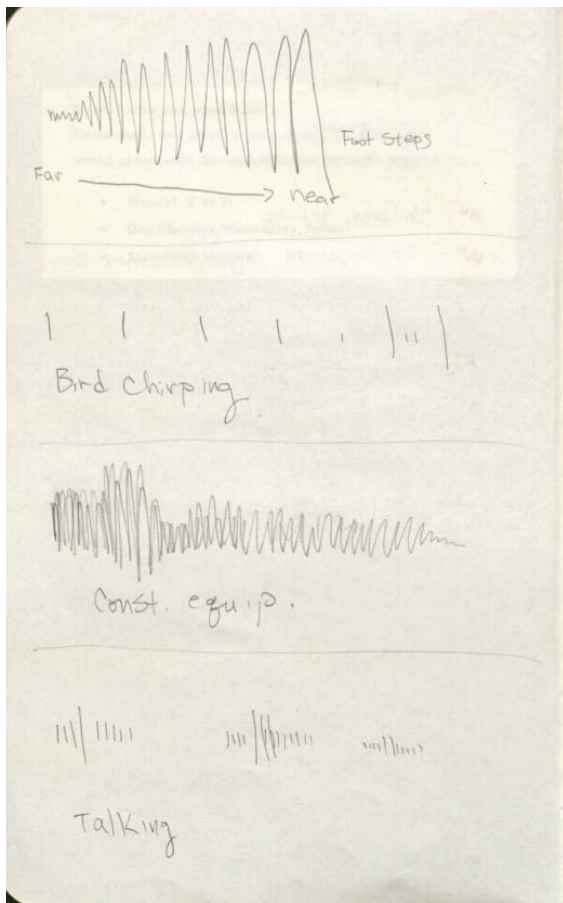 Foot Steps
Far
near
Bird Chirping
Const. equip.
Talking